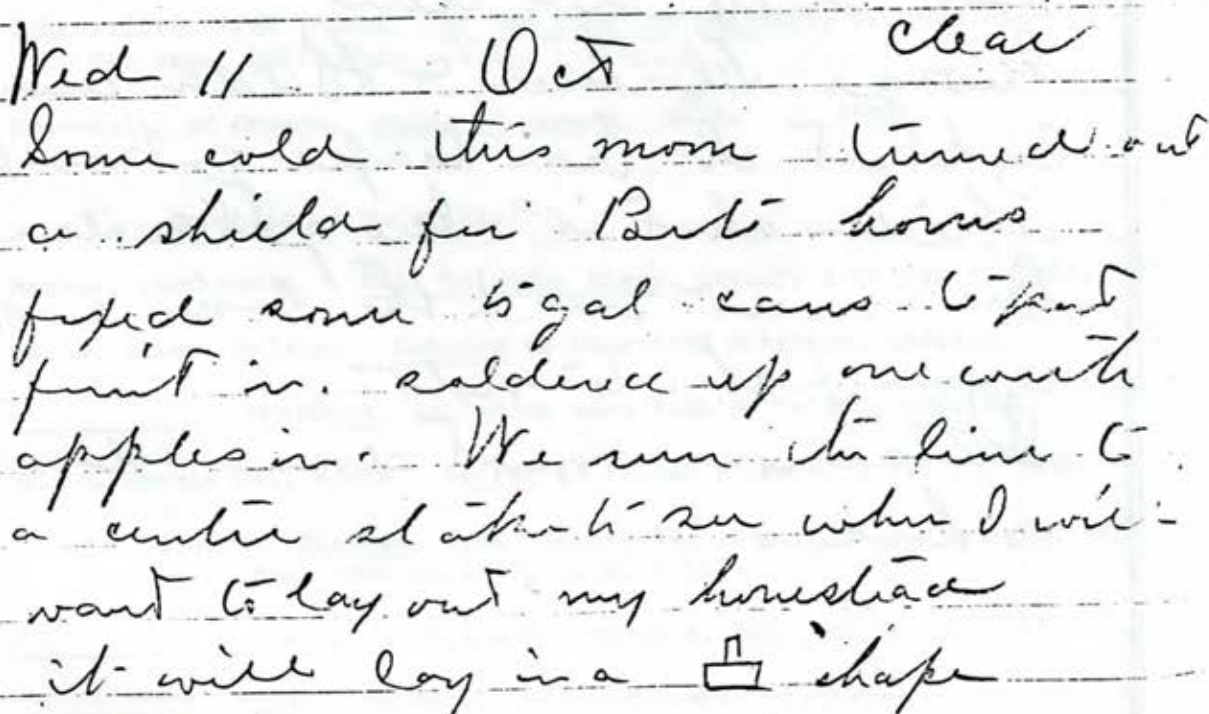 Wed 11 Oct clear
Some cold this morn turned out
a shield for Berts horns
fixed some 5 gal cans to put
fruit in. soldered up one with
apples in. We run the line to
a centre stake to see where I will
want to lay out my homestead
it will lay in a shape